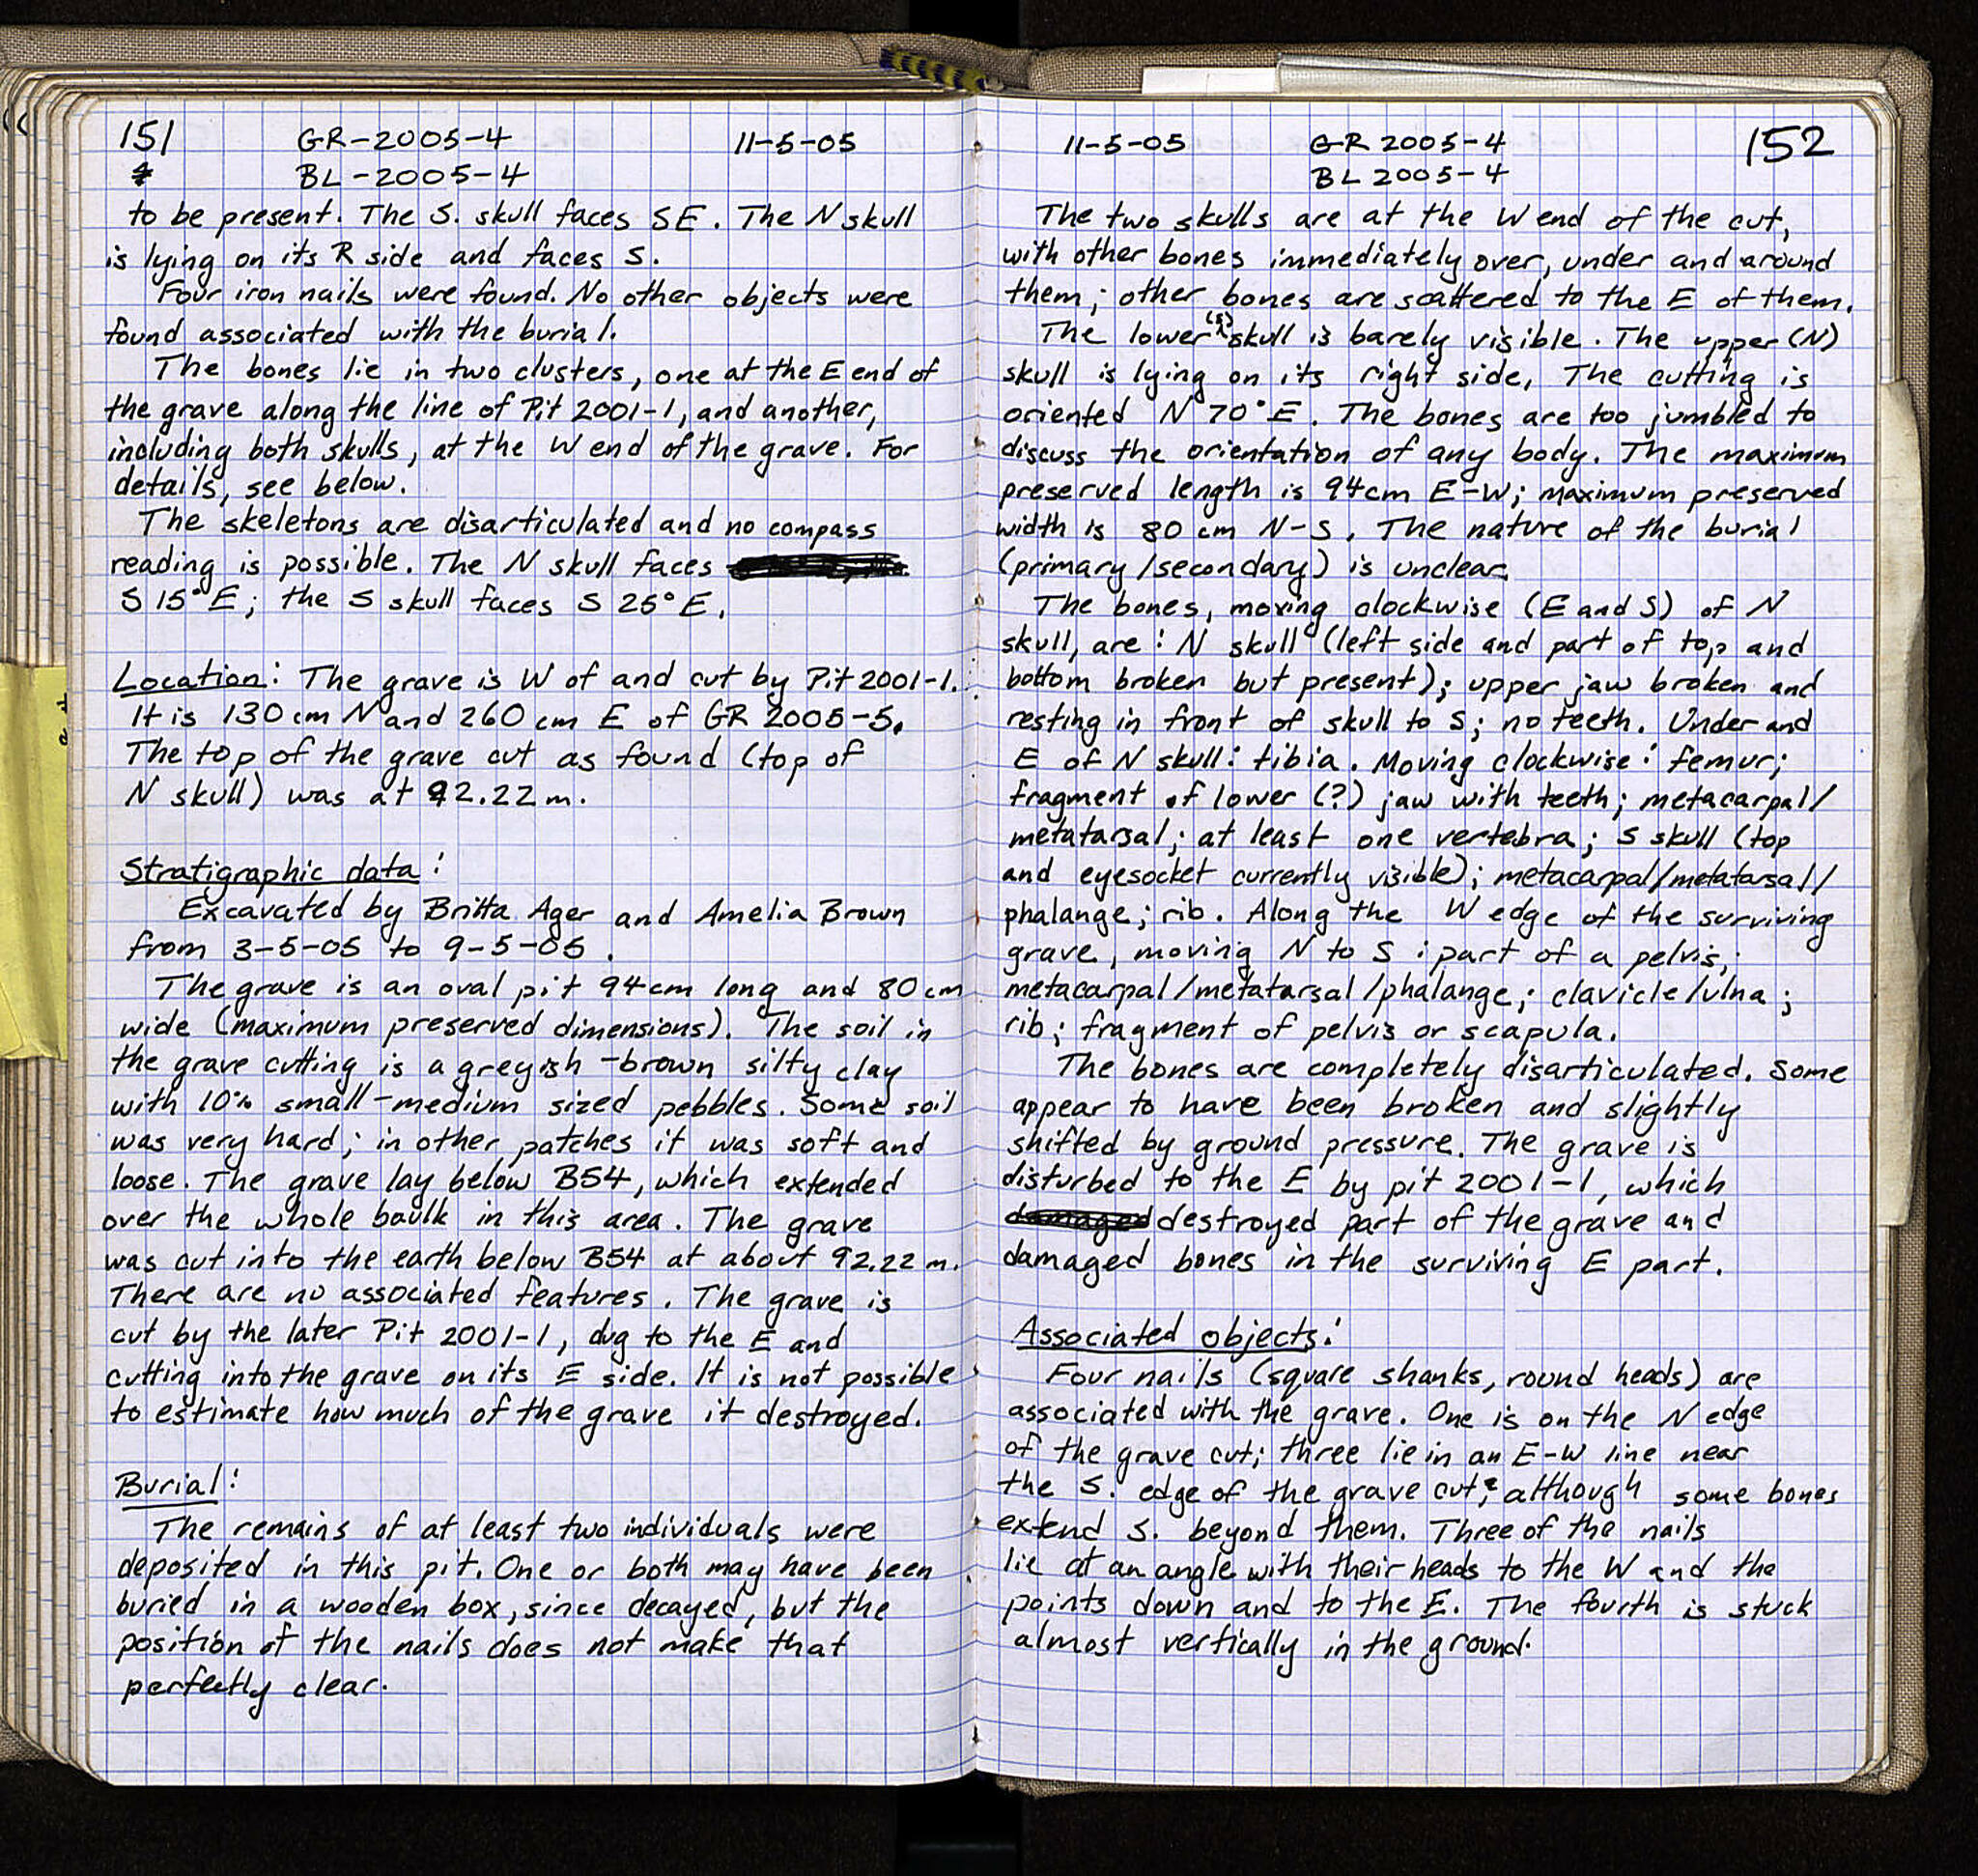 151 GR-2005-4 11-5-05
BL-2005-4
to be present. The S. skull faces SE. The N skull
is lying on its R side and faces S.
Four iron nails were found. No other objects were
found associated with the burial.
The bones lie in two clusters, one at the E end of
the grave along the line of Pit 2001-1, and another,
including both skulls, at the W end of the grave. For
details, see below.
The skeletons are disarticulated and no compass
reading is possible. The N skull faces
S 15°E; the S skull faces S 25°E.
Location: The grave is W of and cut by Pit 2001-1.
It is 130 cm N and 260 cm E of GR 2005-5.
The top of the grave cut as found (top of
N skull) was at 92.22 m.
Stratigraphic data:
Excavated by Britta Ager and Amelia Brown
from 3-5-05 to 9-5-05.
The grave is an oval pit 94cm long and 80 cm
wide (maximum preserved dimensions). The soil in
the grave cutting is a greyish-brown silty clay
with 10% small-medium sized pebbles. Some soil
was very hard; in other patches it was soft and
loose. The grave lay below B54, which extended
over the whole baulk in this area. The grave
was cut into the earth below B54 at about 92.22 m.
There are no associated features. The grave is
cut by the later Pit 2001-1, dug to the E and
cutting into the grave on its E side. It is not possible
to estimate how much of the grave it destroyed.
Burial:
The remains of at least two individuals were
deposited in this pit. One or both may have been
buried in a wooden box, since decayed, but the
position of the nails does not make that
perfectly clear.
11-5-05 GR 2005-4 152
BL 2005-4
The two skulls are at the W end of the cut,
with other bones immediately over, under and around
them; other bones are scattered to the E of them.
The lower (S) skull is barely visible. The upper (N)
skull is lying on its right side. The cutting is
oriented N 70°E. The bones are too jumbled to
discuss the orientation of any body. The maximum
preserved length is 94cm E-W; maximum preserved
width is 80 cm N-S. The nature of the burial
(primary/secondary) is unclear.
The bones, moving clockwise (E and S) of N
skull, are: N skull (left side and part of top and
bottom broken but present); upper jaw broken and
resting in front of skull to S; no teeth. Under and
E of N skull: tibia. Moving clockwise: femur;
fragment of lower (?) jaw with teeth; metacarpal/
metatarsal; at least one vertebra; S skull (top
and eyesocket currently visible); metacarpal/metatarsal/
phalange; rib. Along the W edge of the surviving
grave, moving N to S: part of a pelvis;
metacarpal/metatarsal/phalange; clavicle/ulna;
rib; fragment of pelvis or scapula.
The bones are completely disarticulated. Some
appear to have been broken and slightly
shifted by ground pressure. The grave is
disturbed to the E by pit 2001-1, which
damaged destroyed part of the grave and
damaged bones in the surviving E part.
Associated objects:
Four nails (square shanks, round heads) are
associated with the grave. One is on the N edge
of the grave cut; three lie in an E-W line near
the S. edge of the grave cut, although some bones
extend S. beyond them. Three of the nails
lie at an angle with their heads to the W and the
points down and to the E. The fourth is stuck
almost vertically in the ground.